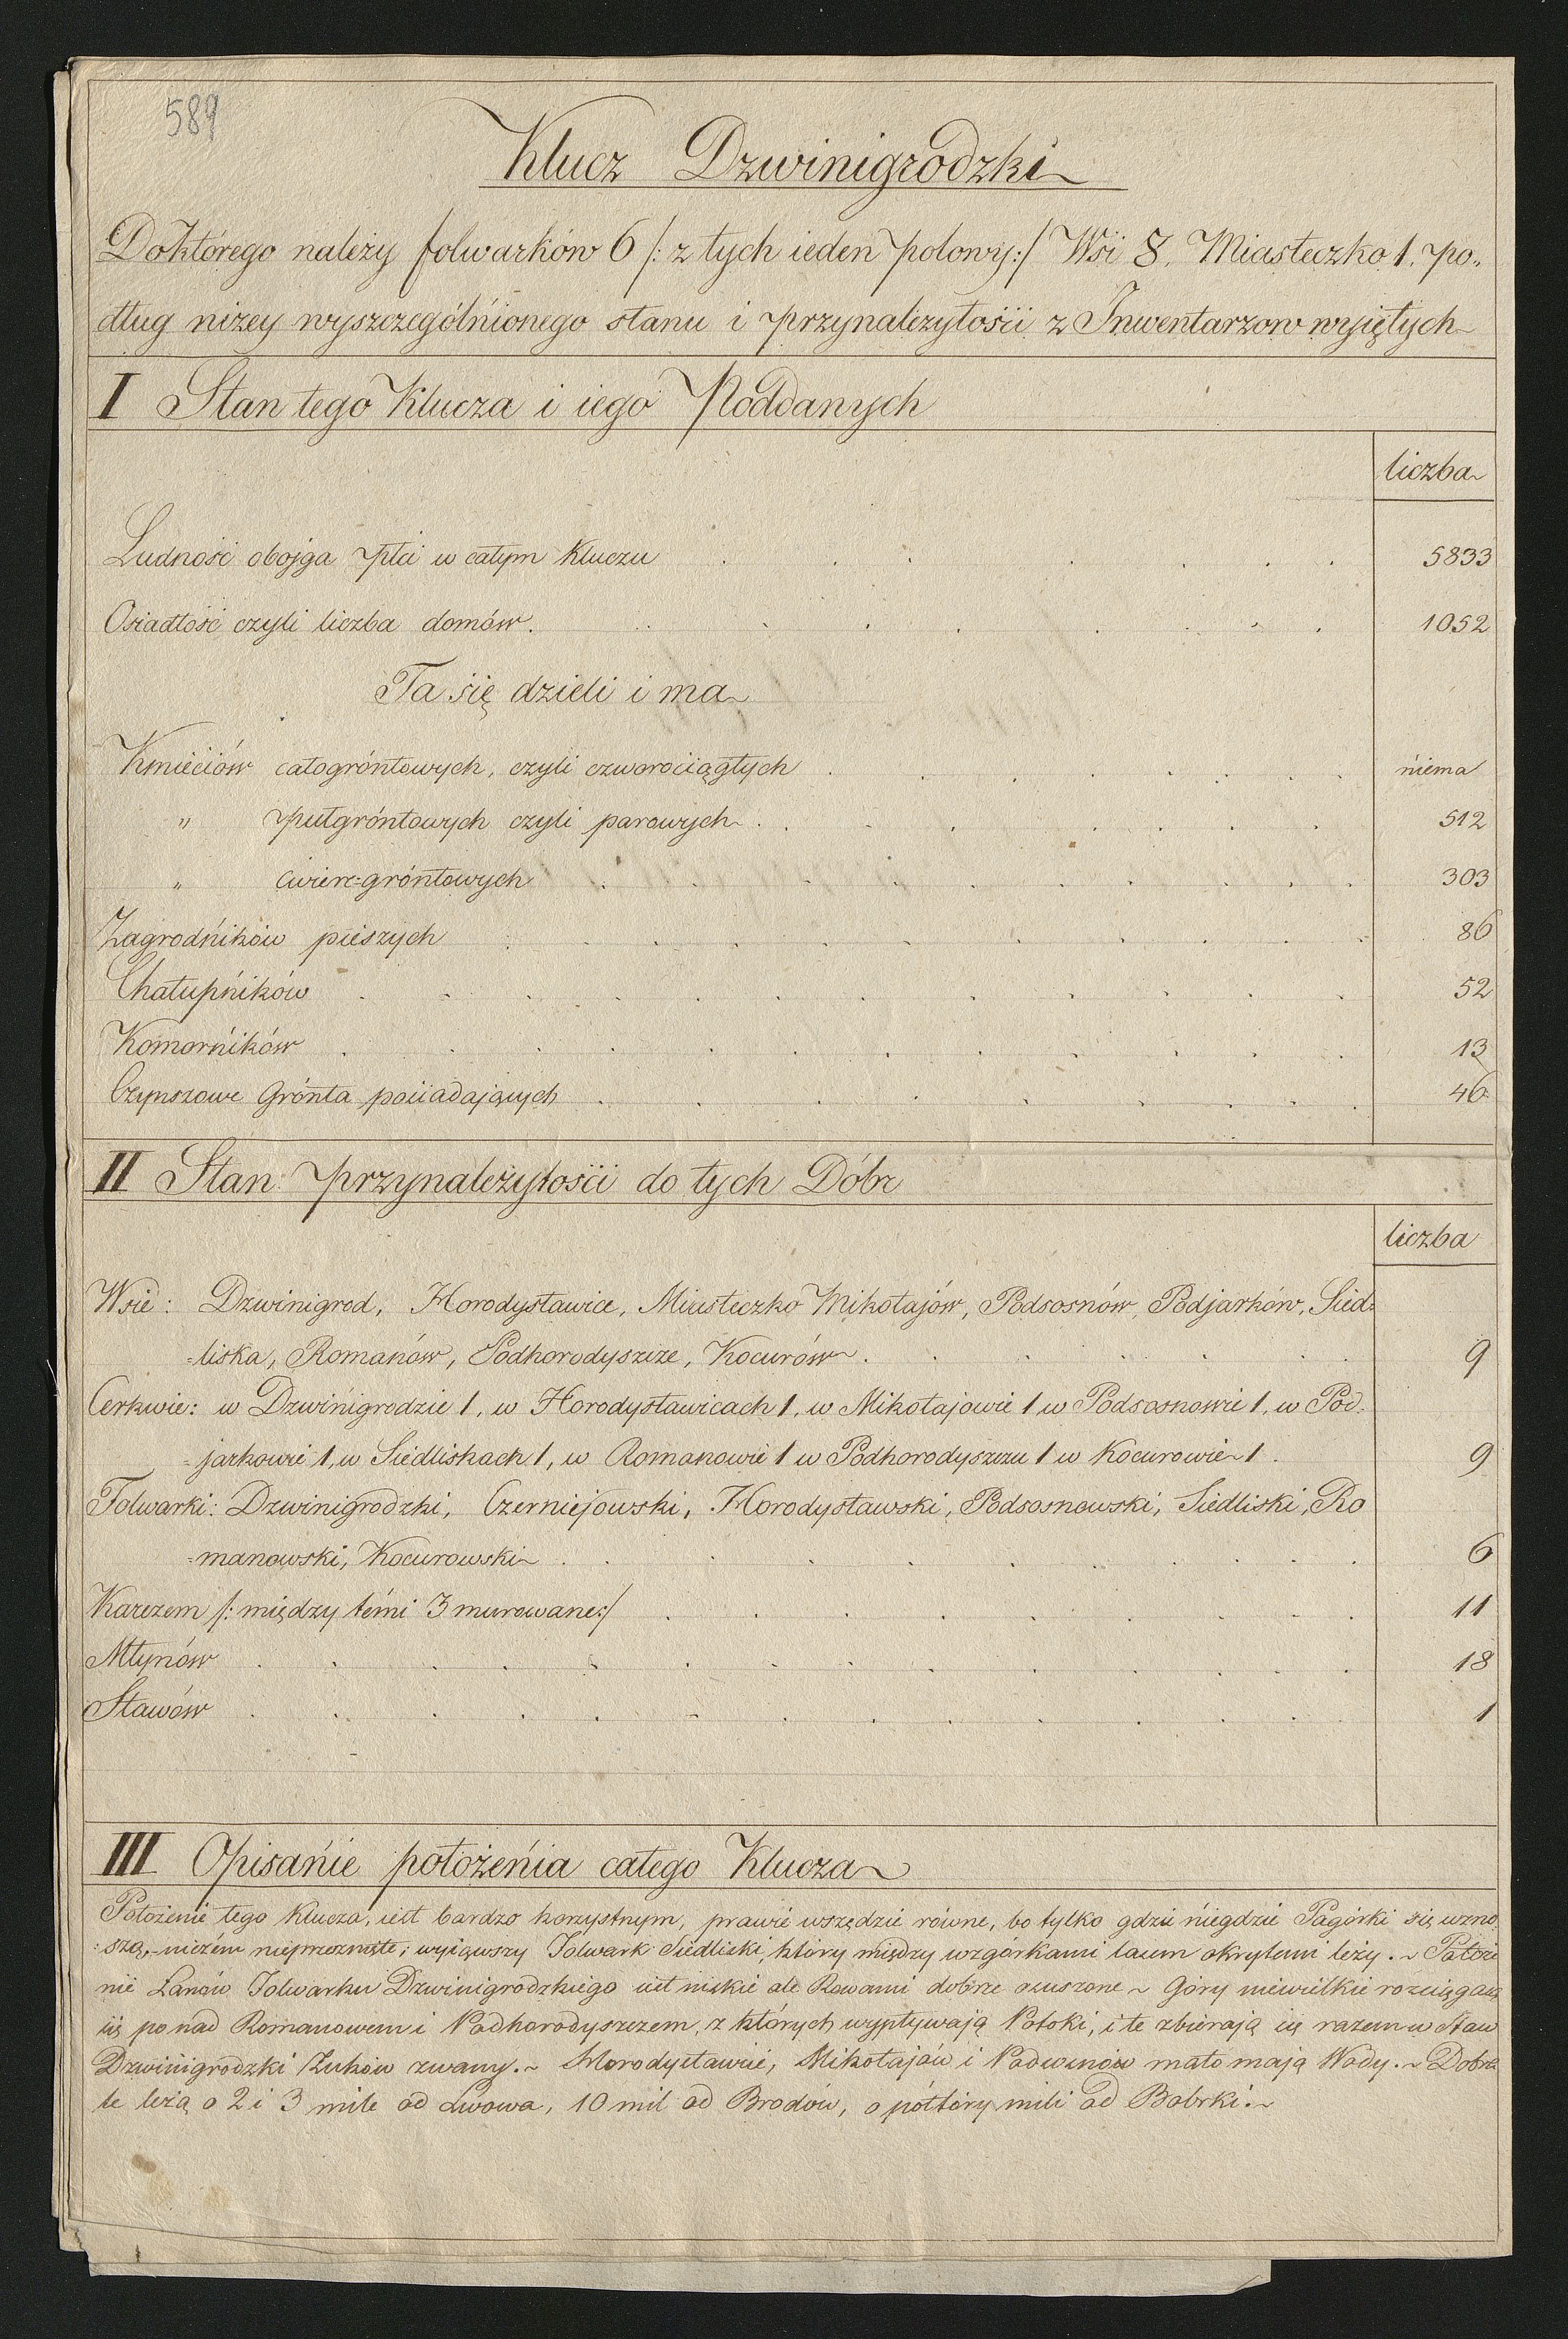 589
Klucz Dzwinigrodzki
Do którego należy folwarków 6 /: z tych ieden polowy :/ Wsi 8. Miasteczko 1. po„
dług niżey wyszczególnionego stanu i przynależytości z Inwentarzow wyiętych
I Stan tego Klucza i iego Poddanych
liczba
Ludność obojga płci w całym Kluczu 5833
Osiadłość czyli liczba domów. 1052
Ta się dzieli i ma
Kmieciów całogróntowych, czyli czworociągłych niema
„ pułgróntowych czyli parowych 512
„ ćwierć=gróntowych 303
Zagrodników pieszych 86
Chałupników 52
Komorników 13
Czynszowe Grónta posiadających 46
II Stan przynależytości do tych Dóbr
liczba
Wsie: Dzwinigrod, Horodysławice, Miasteczko Mikołajów, Podsosnów, Podjarków, Sied=
=liska, Romanów, Podhorodyszcze, Kocurów. 9
Cerkwie: w Dzwinigrodzie 1, w Horodysławicach 1, w Mikołajowie 1 w Podsosnowie 1, w Pod=
=jarkowie 1, w Siedliskach 1, w Romanowie 1 w Podhorodyszczu 1 w Kocurowie 1. 9
Folwarki: Dzwinigrodzki, Czerniejowski, Horodysławski, Podsosnowski, Siedliski, Ro
=manowski, Kocurowski 6
Karczem /: między témi 3 murowane :/ 11
Młynów 18
Stawów 1
III Opisanie położenia całego Klucza
Położenie tego Klucza, iest bardzo korzystnym, prawie wszędzie równe, bo tylko gdzie niegdzie Pagórki się wzno
=szą,- niczém nieprzerznięte; wyiąwszy Folwark Siedliski, który między wzgórkami lasem okrytemi leży. ~ Położe
nie Łanów Folwarku Dzwinigrodzkiego iest niskie ale Rowami dobrze osuszone ~ Góry niewielkie rozciągaią
się po nad Romanowem i Podhorodyszczem, z których wypływają Potoki, i te zbierają się razem w Staw
Dzwinigrodzki Żuków zwany. ~ Horodysławice, Mikołajów i Podsosnów mało mają Wody. ~ Dobra
te leżą o 2 i 3 mile od Lwowa, 10 mil od Brodów, o półtóry mili od Bobrki. ~